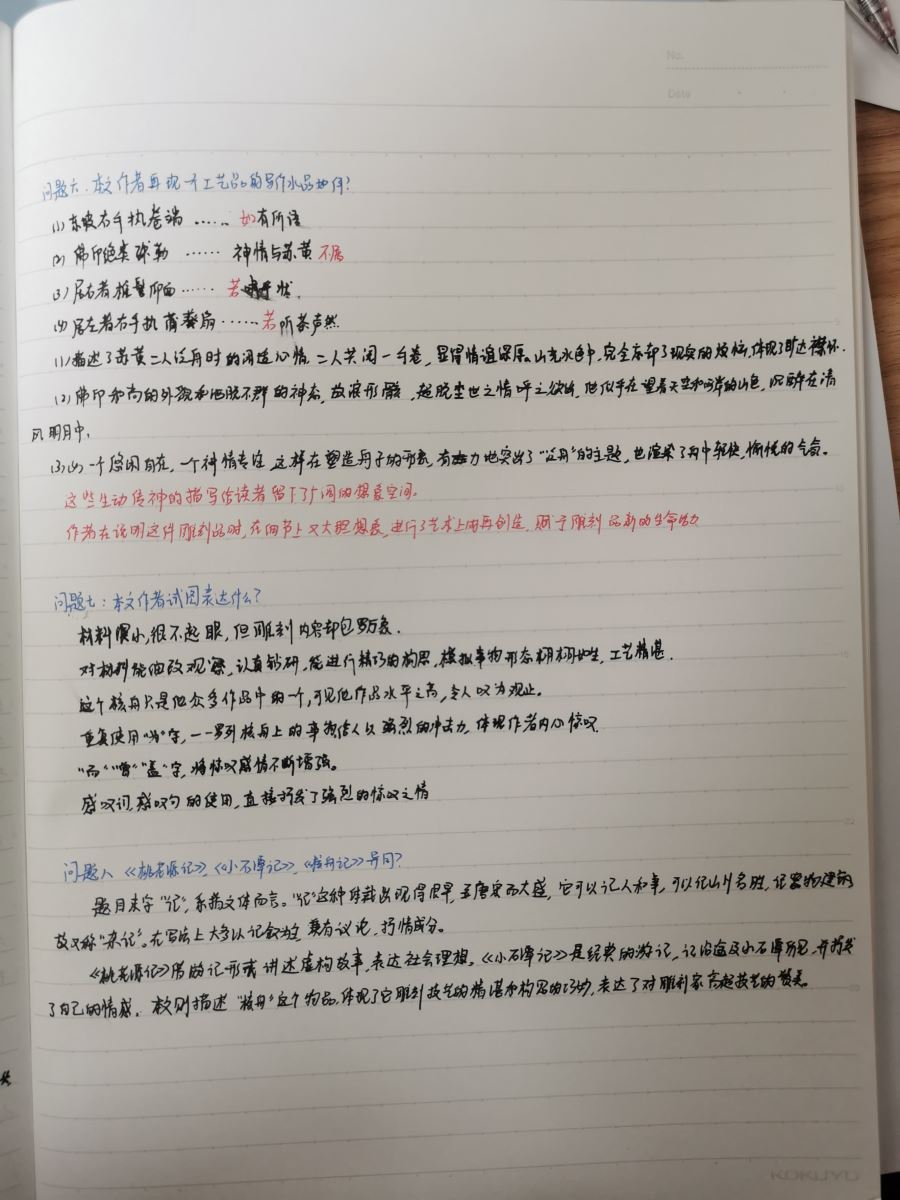 No.
Date
问题六、本文作者再现工艺品的写作水品如何?
(1) 东坡右手执卷端 …… 如有所语
(2) 佛印绝类弥勒 …… 神情与苏黄不属
(3) 居右者椎髻仰面 …… 若 状.
(4) 居左者右手执蒲葵扇 …… 若听茶声然
(1) 描述了苏黄二人泛舟时的闲适心情,二人共阅一手卷,显得情谊深厚。山光水色中,完全忘却了现实的烦恼,体现了旷达襟怀.
(2) 佛印和尚的外貌和洒脱不群的神态,放浪形骸,超脱尘世之情呼之欲出,他似乎在望着天空和两岸的山色,沉醉在清
风明月中.
(3)(4) 一个悠闲自在,一个神情专注,这样在塑造舟子的形象,有力地突出了"泛舟"的主题,也渲染了舟中轻快,愉悦的气氛。
这些生动传神的描写给读者留下了广阔的想象空间.
作者在说明这件雕刻品时,在细节上又大胆想象,进行了艺术上的再创造,赋予雕刻品新的生命力
问题七:本文作者试图表达什么?
材料很小,很不起眼,但雕刻内容却包罗万象.
对材料能细致观察,认真钻研,能进行精巧的构思,模拟事物形态栩栩如生,工艺精湛.
这个核舟只是他众多作品中的一个,可见他作品水平之高,令人叹为观止。
重复使用"为"字,一一罗列核舟上的事物给人以强烈的冲击力,体现作者内心惊叹.
"而""曾""盖"字,将惊叹感情不断增强。
感叹词,感叹句的使用,直接抒发了强烈的惊叹之情
问题八《桃花源记》,《小石潭记》,《核舟记》异同?
题目末字"记",系指文体而言。"记"这种体裁出现得很早,至唐宋而大盛,它可以记人和事,可以记山川名胜,记器物建筑
故又称"杂记"。在写法上大多以记叙为主,兼有议论,抒情成分。
《桃花源记》借游记形式讲述虚构故事,表达社会理想。《小石潭记》是经典的游记,记沿途及小石潭所见,并抒发
了自己的情感.本文则描述"核舟"这个物品,体现了它雕刻技艺的精湛和构思的巧妙,表达了对雕刻家高超技艺的赞美。
KOKUYO